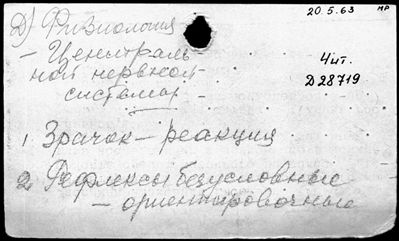 20.5.63 нр
Д) Физиология
— Централь-
ной нервной
системы
4 ит.
Д28719
1. Зрачок — реакция
2. Рефлексы безусловные
— ориентировочные